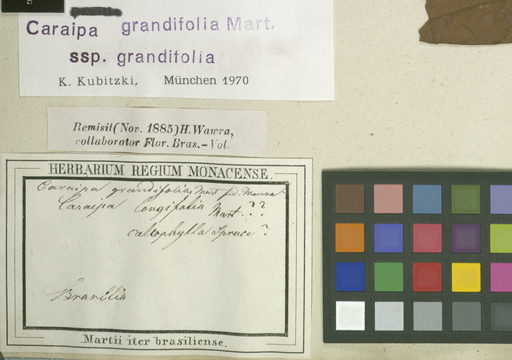 Caraipa grandifolia Mart.
ssp. grandifolia
K. Kubitzki, München 1970
Remisit (Nov. 1885) H. Wawra,
collaborator Flor. Bras. - Vol.
HERBARIUM REGIUM MONACENSE.
Caraipa grandifolia Mart fid. Wawra
Caraipa longifolia Mart. ? ?
callophylla Spruce ?
Brasilia
Martii iter brasiliense.